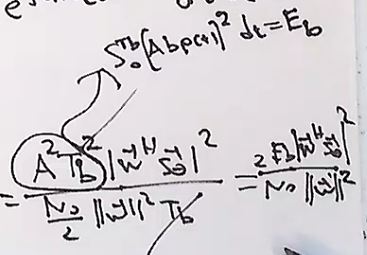 ∫₀^{Tb} [A b p(t)]² dt = E_b
= A² T_b² |w⃗ᴴ s⃗₀|² / (N₀/2 ||w⃗||² T_b) = 2 E_b |w⃗ᴴ s⃗₀|² / (N₀ ||w⃗||²)